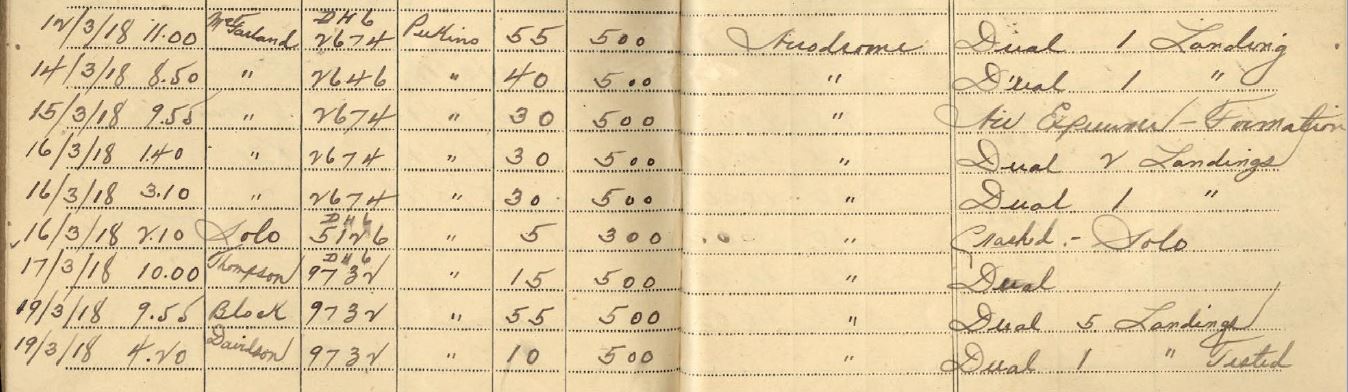 12/3/18 11.00 McFarland DH6 2674 Perkins 55 500 Aerodrome Dual 1 Landing
14/3/18 8.50 " 2646 " 40 500 " Dual 1 "
15/3/18 9.55 " 2674 " 30 500 " Air Experience - Formation
16/3/18 1.40 " 2674 " 30 500 " Dual 2 Landings
16/3/18 3.10 " 2674 " 30 500 " Dual 1 "
16/3/18 2.10 Solo DH6 5126 " 5 300 " Crashed - Solo
17/3/18 10.00 Thompson DH6 9732 " 15 500 " Dual
19/3/18 9.55 Block 9732 " 55 500 " Dual 5 Landings
19/3/18 4.20 Davidson 9732 " 10 500 " Dual 1 " Tested